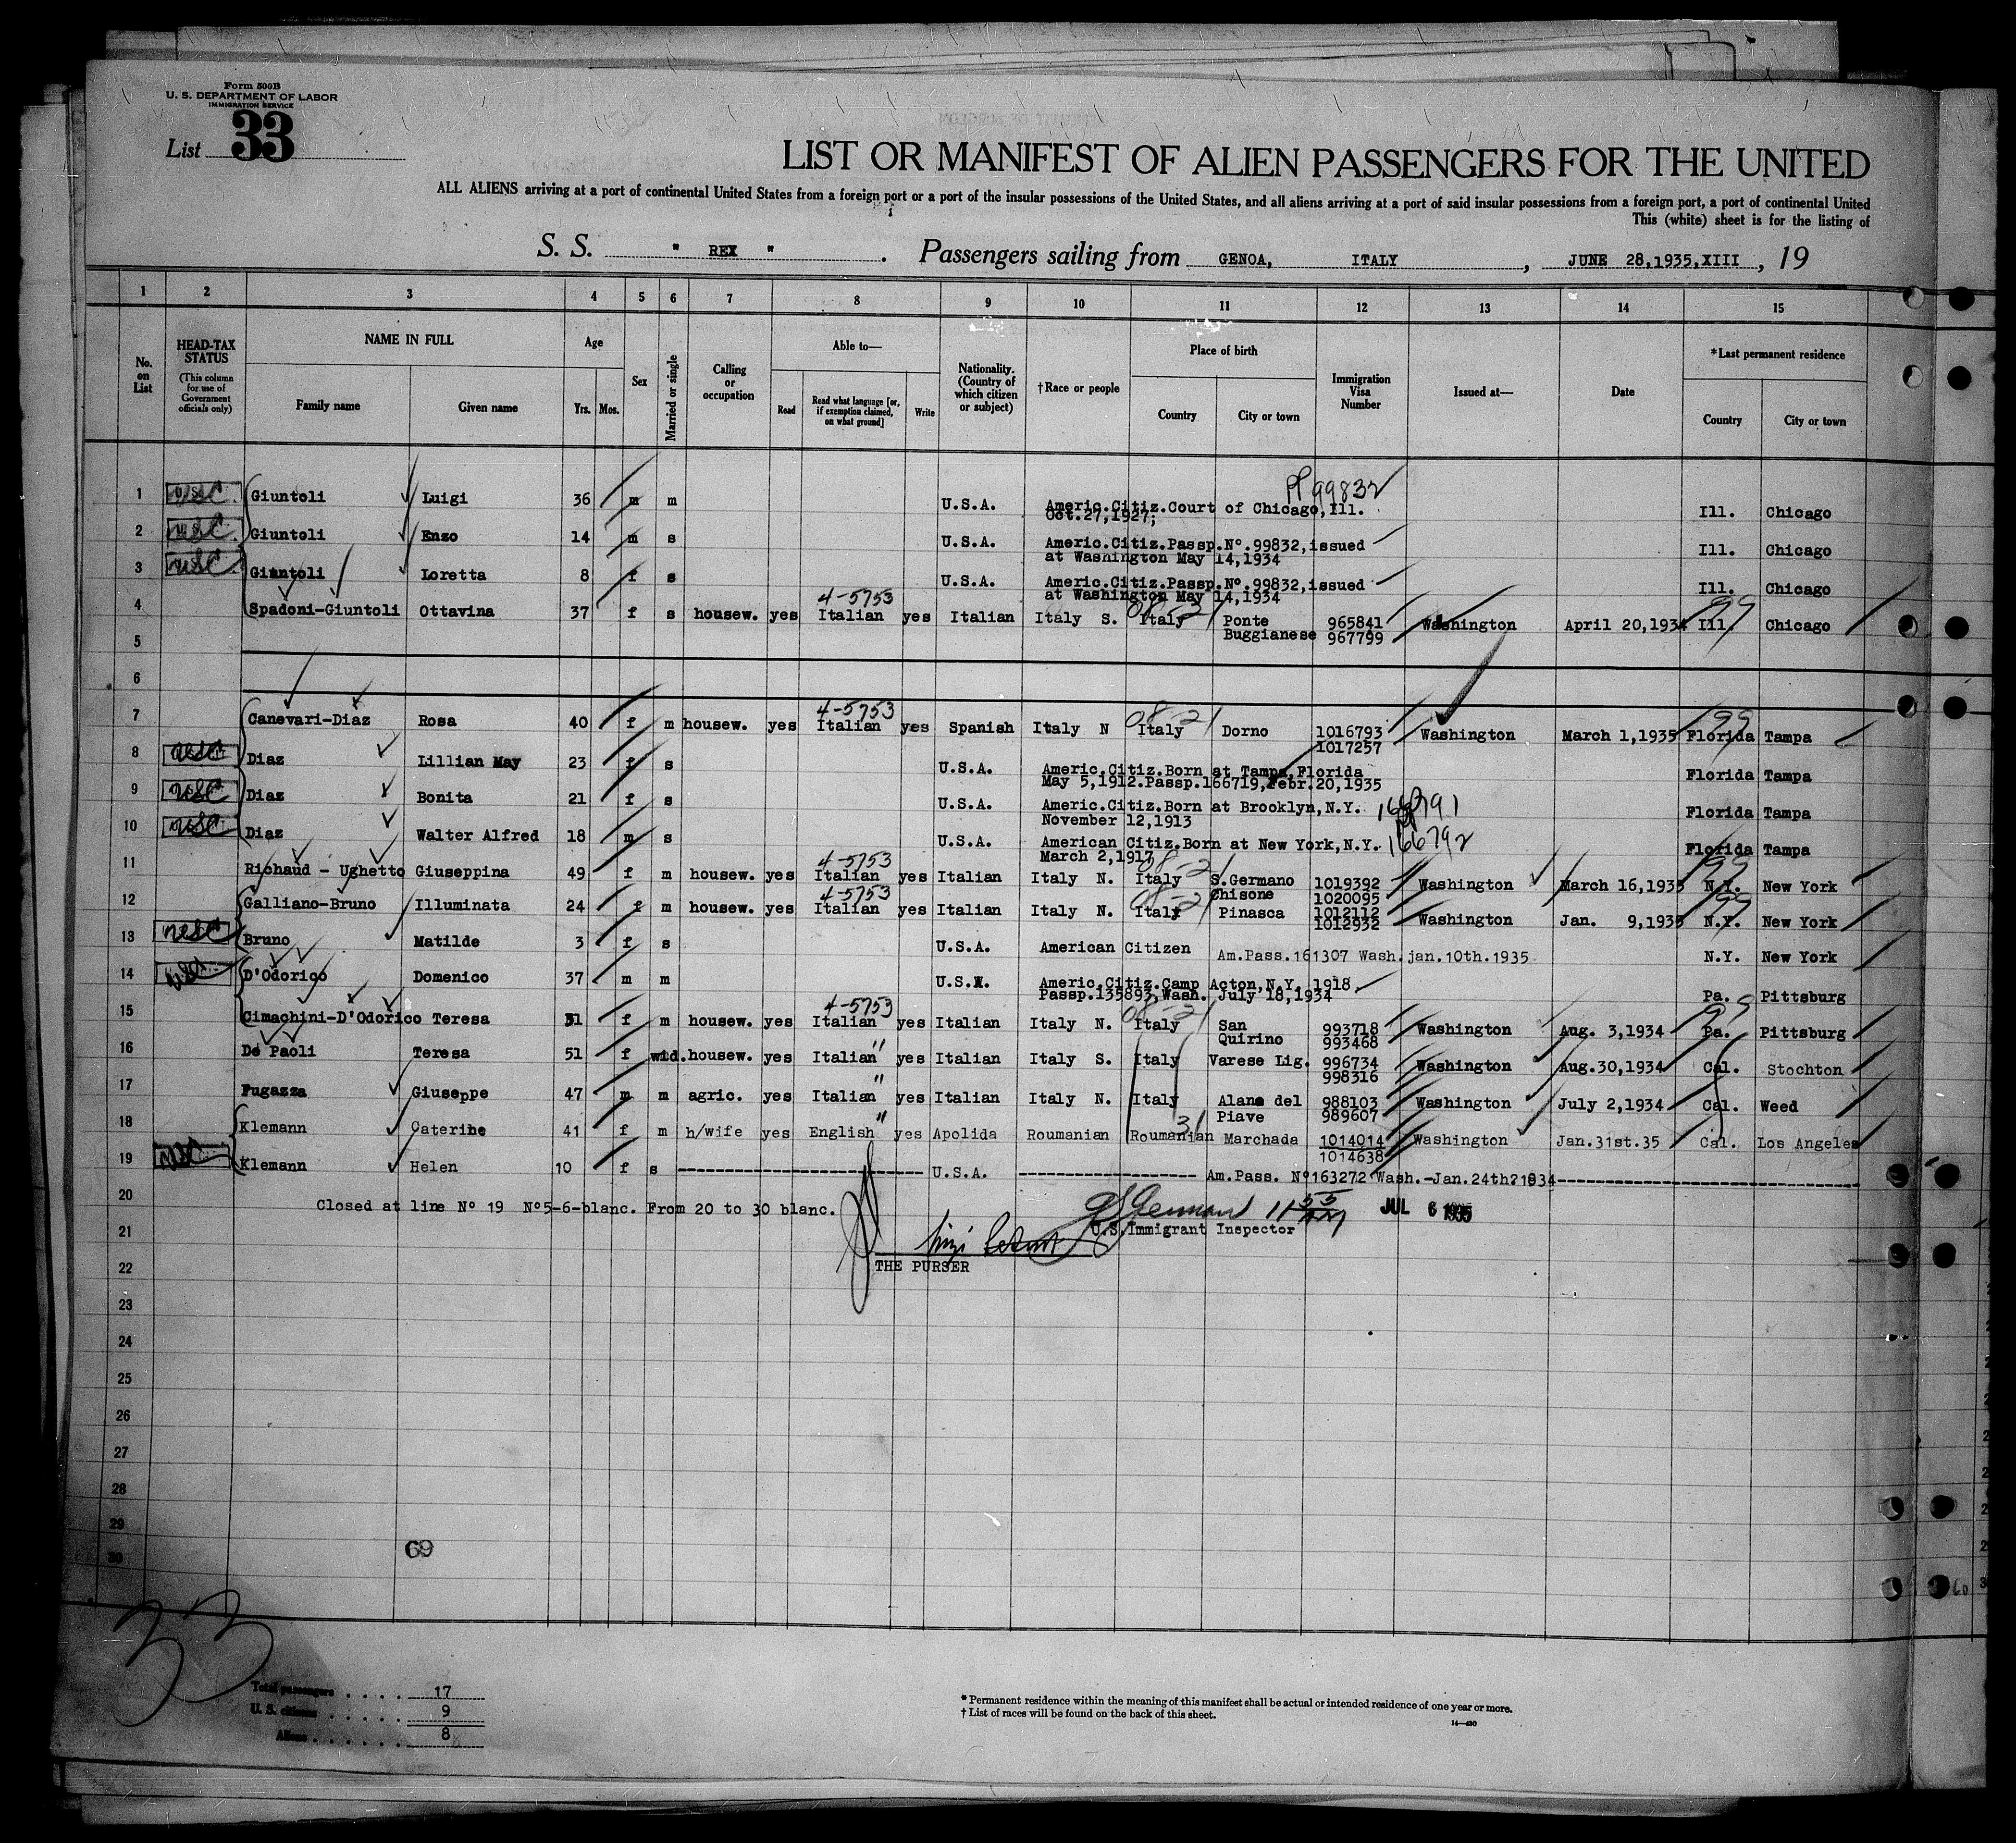 Form 500B
U. S. DEPARTMENT OF LABOR
IMMIGRATION SERVICE
List 33
LIST OR MANIFEST OF ALIEN PASSENGERS FOR THE UNITED
ALL ALIENS arriving at a port of continental United States from a foreign port or a port of the insular possessions of the United States, and all aliens arriving at a port of said insular possessions from a foreign port, a port of continental United
This (white) sheet is for the listing of
S. S. " REX " . Passengers sailing from GENOA, ITALY , JUNE 28,1935,XIII , 19
1 2 3 4 5 6 7 8 9 10 11 12 13 14 15
No. on List
HEAD-TAX STATUS
(This column for use of Government officials only)
NAME IN FULL
Family name Given name
Age
Yrs. Mos.
Sex
Married or single
Calling or occupation
Able to—
Read
Read what language [or, if exemption claimed, on what ground]
Write
Nationality. (Country of which citizen or subject)
†Race or people
Place of birth
Country City or town
Immigration Visa Number
Issued at—
Date
*Last permanent residence
Country City or town
PP 99832
1 USC Giuntoli Luigi 36 m m U.S.A. Americ.Citiz.Court of Chicago,Ill. Ill. Chicago
Oct.27,1927;
2 USC Giuntoli Enzo 14 m s U.S.A. Americ.Citiz.Passp.Nº.99832,issued Ill. Chicago
at Washington May 14,1934
3 USC Giuntoli Loretta 8 f s U.S.A. Americ.Citiz.Passp.Nº.99832,issued Ill. Chicago
at Washington May 14,1934
4-5753 08-21 99
4 Spadoni-Giuntoli Ottavina 37 f s housew. yes Italian yes Italian Italy S. Italy Ponte 965841 Washington April 20,1934 Ill. Chicago
Buggianese 967799
5
6
4-5753 08-21 99
7 Canevari-Diaz Rosa 40 f m housew. yes Italian yes Spanish Italy N Italy Dorno 1016793 Washington March 1,1935 Florida Tampa
1017257
8 USC Diaz Lillian May 23 f s U.S.A. Americ.Citiz.Born at Tampa,Florida Florida Tampa
May 5,1912.Passp.166719,Febr.20,1935
9 USC Diaz Bonita 21 f s U.S.A. Americ.Citiz.Born at Brooklyn,N.Y. 166791 Florida Tampa
November 12,1913
10 USC Diaz Walter Alfred 18 m s U.S.A. American Citiz.Born at New York,N.Y. 166792 Florida Tampa
March 2,1917
4-5753 08-21 99
11 Richaud - Ughetto Giuseppina 49 f m housew. yes Italian yes Italian Italy N. Italy S.Germano 1019392 Washington March 16,1935 N.Y. New York
Chisone 1020095
4-5753 08-21 99
12 Galliano-Bruno Illuminata 24 f m housew. yes Italian yes Italian Italy N. Italy Pinasca 1012112 Washington Jan. 9,1935 N.Y. New York
1012932
13 USC Bruno Matilde 3 f s U.S.A. American Citizen Am.Pass.161307 Wash.jan.10th.1935 N.Y. New York
14 D'Odorico Domenico 37 m m Americ.Citiz.Camp Acton,N.Y. 1918. Pa. Pittsburg
Passp.135893,Wash. July 18,1934
4-5753 08-21 99
15 Cimachini-D'Odorico Teresa 31 f m housew. yes Italian yes Italian Italy N. Italy San 993718 Washington Aug. 3,1934 Pa. Pittsburg
Quirino 993468
16 De Paoli Teresa 51 f wid. housew. yes Italian " yes Italian Italy S. Italy Varese Lig. 996734 Washington Aug.30,1934 Cal. Stochton
998316
17 Fugazza Giuseppe 47 m m agric. yes Italian " yes Italian Italy N. Italy Alano del 988103 Washington July 2,1934 Cal. Weed
Piave 989607
31
18 Klemann Caterine 41 f m h/wife yes English " yes Apolida Roumanian Roumanian Marchada 1014014 Washington Jan.31st.35 Cal. Los Angeles
1014638
19 USC Klemann Helen 10 f s ---------- U.S.A. ---------- Am.Pass. Nº163272 Wash.-Jan.24th?1934----------
20 Closed at line Nº 19 Nº5-6-blanc. From 20 to 30 blanc. JUL 6 1935
U.S.Immigrant Inspector
21
THE PURSER
22
23
24
25
26
27
28
29
30
69
33
Total passengers . . . . 17
U. S. citizens . . . . . 9
Aliens . . . . . . 8
* Permanent residence within the meaning of this manifest shall be actual or intended residence of one year or more.
† List of races will be found on the back of this sheet.
14—430